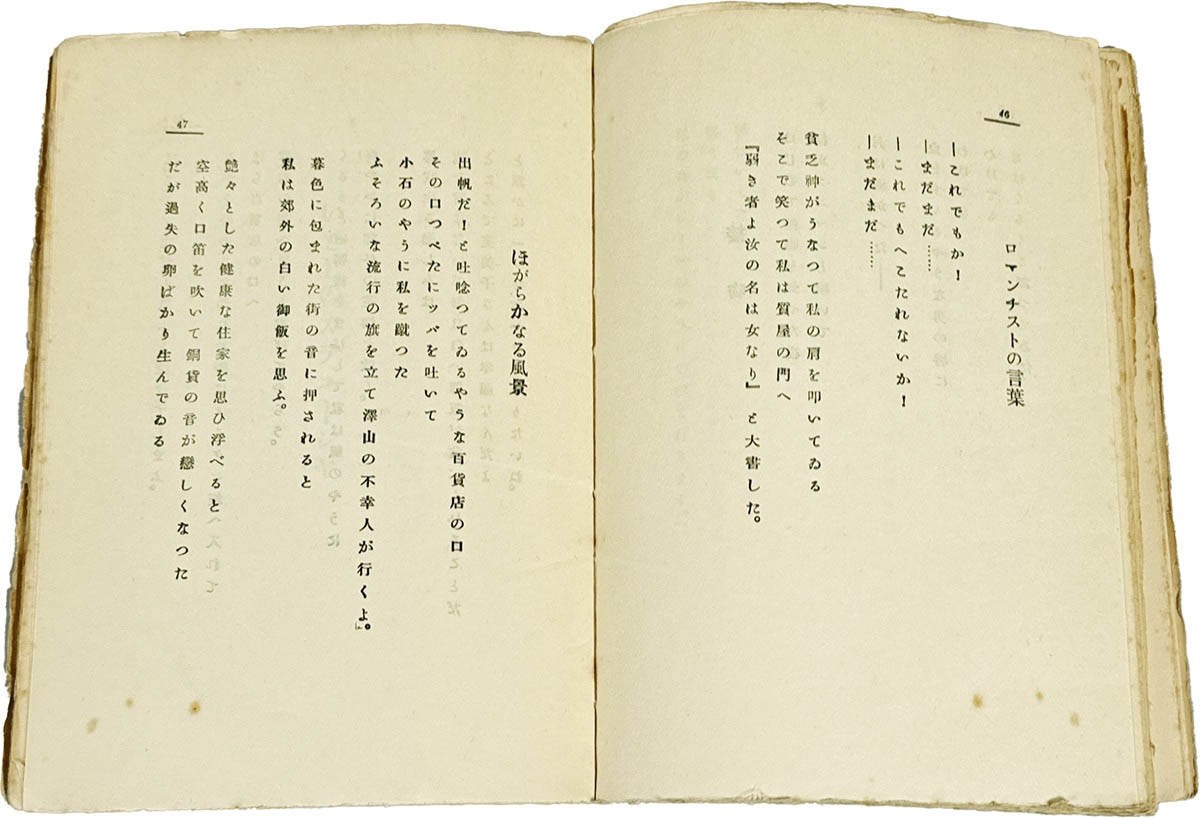 46
ロマンチストの言葉
―これでもか！
―まだまだ……
―これでもへこたれないか！
―まだまだ……
貧乏神がうなつて私の肩を叩いてゐる
そこで笑つて私は質屋の門へ
『弱き者よ汝の名は女なり』と大書した。
47
ほがらかなる風景
出帆だ！と吐唸つてゐるやうな百貨店の口
その口つぺたにツバを吐いて
小石のやうに私を蹴つた
ふそろいな流行の旗を立て澤山の不幸人が行くよ。」
暮色に包まれた街の音に押されると
私は郊外の白い御飯を思ふ。
艶々とした健康な住家を思ひ浮べると
空高く口笛を吹いて銅貨の音が戀しくなつた
だが過失の卵ばかり生んでゐる